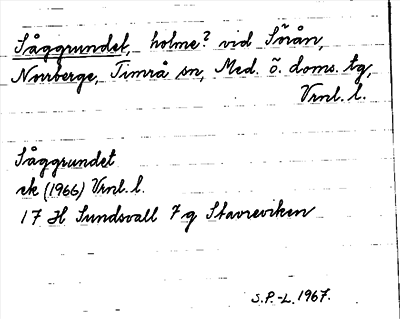 Såggrundet, holme? vid Sörån,
Norrberge, Timrå sn, Med. ö. doms. tg,
Vrnl. l.
Såggrundet
ek (1966) Vrnl. l.
17 H Sundsvall 7 g Stavreviken
S.P.-L. 1967.